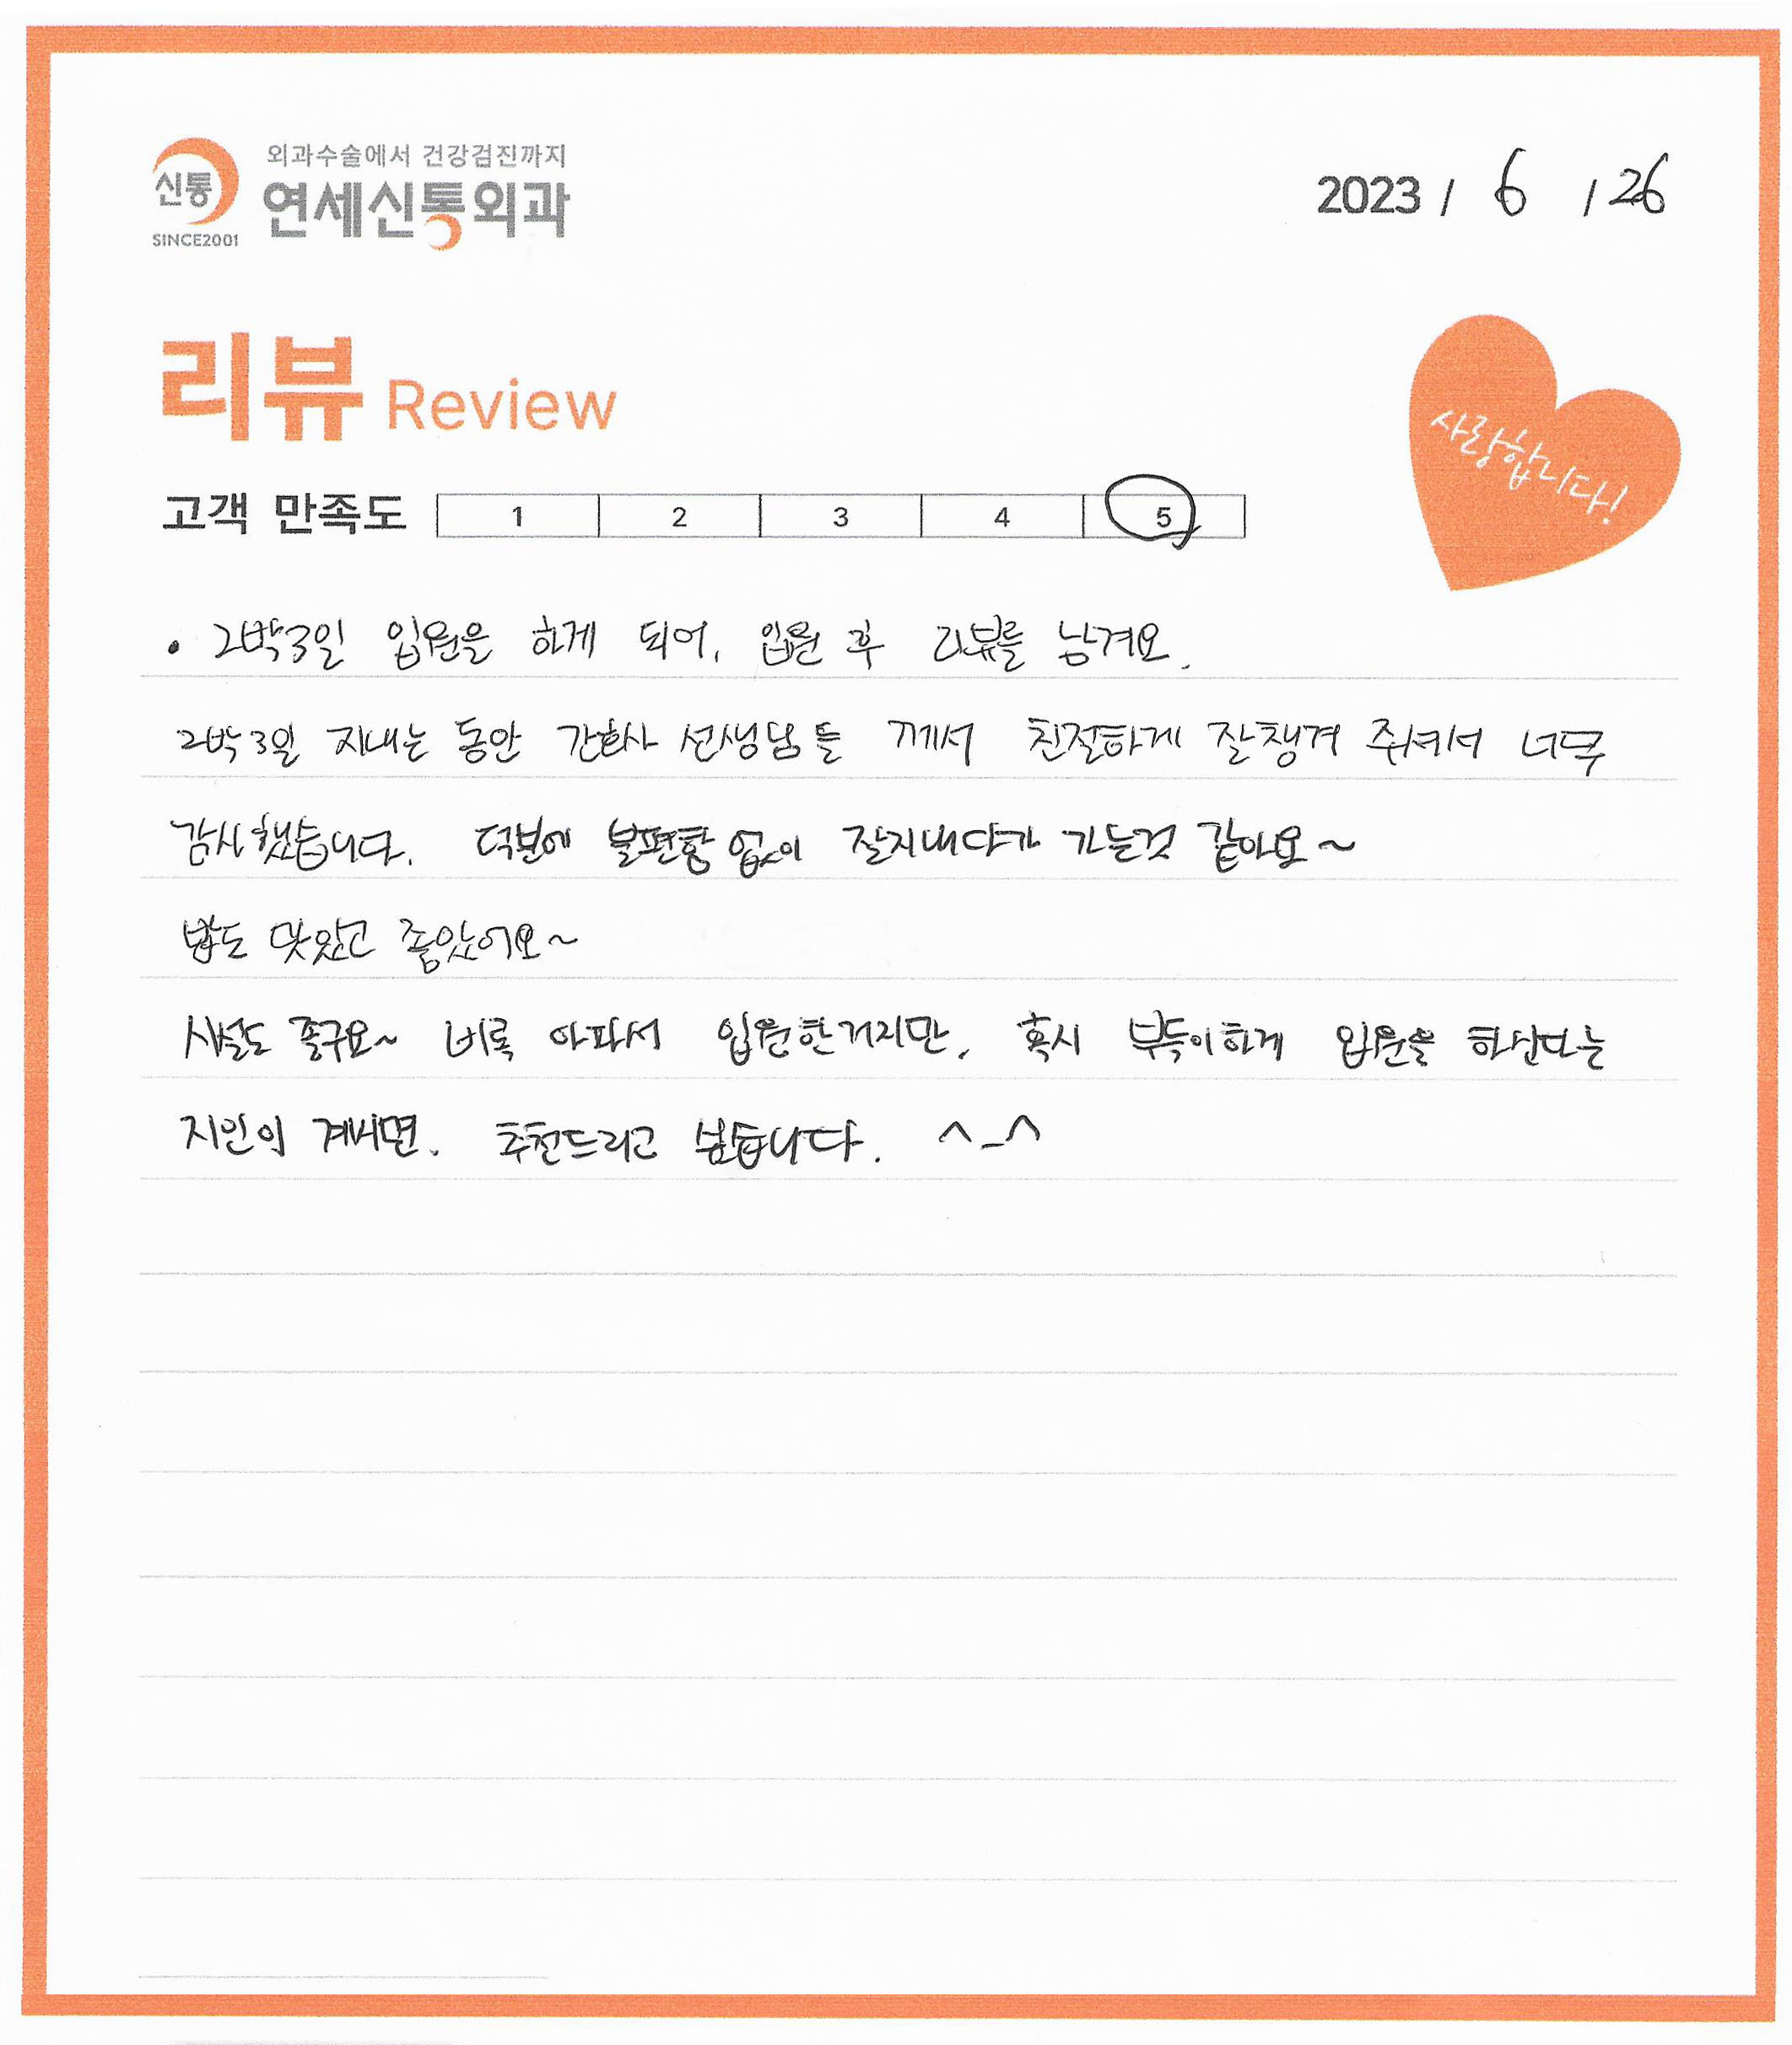 외과수술에서 건강검진까지
신통 연세신통외과
SINCE2001
2023 / 6 / 26
리뷰 Review
사랑합니다!
고객 만족도 1 2 3 4 5
• 2박3일 입원을 하게 되어, 입원 후 리뷰를 남겨요.
2박3일 지내는 동안 간호사 선생님들 께서 친절하게 잘챙겨 주셔서 너무
감사했습니다. 덕분에 불편함 없이 잘지내다가 가는것 같아요~
밥도 맛있고 좋았어요~
시설도 좋구요~ 비록 아파서 입원한거지만, 혹시 부득이하게 입원을 하신다는
지인이 계시면, 추천드리고 싶습니다. ^_^